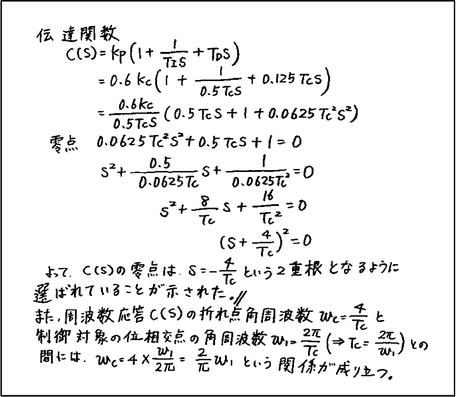 伝達関数
C(S) = Kp(1 + 1/(TIS) + TDS)
= 0.6Kc(1 + 1/(0.5TcS) + 0.125TcS)
= 0.6Kc/(0.5TcS) (0.5TcS + 1 + 0.0625Tc²S²)
零点 0.0625Tc²S² + 0.5TcS + 1 = 0
S² + 0.5/(0.0625Tc) S + 1/(0.0625Tc²) = 0
S² + 8/Tc S + 16/Tc² = 0
(S + 4/Tc)² = 0
よって、C(S)の零点は、S = -4/Tc という2重根となるように
選ばれていることが示された。//
また、周波数応答C(S)の折れ点角周波数 ωc = 4/Tc と
制御対象の位相交点の角周波数 ω1 = 2π/Tc (⇒ Tc = 2π/ω1) との
間には、ωc = 4 × ω1/2π = 2/π ω1 という関係が成り立つ。